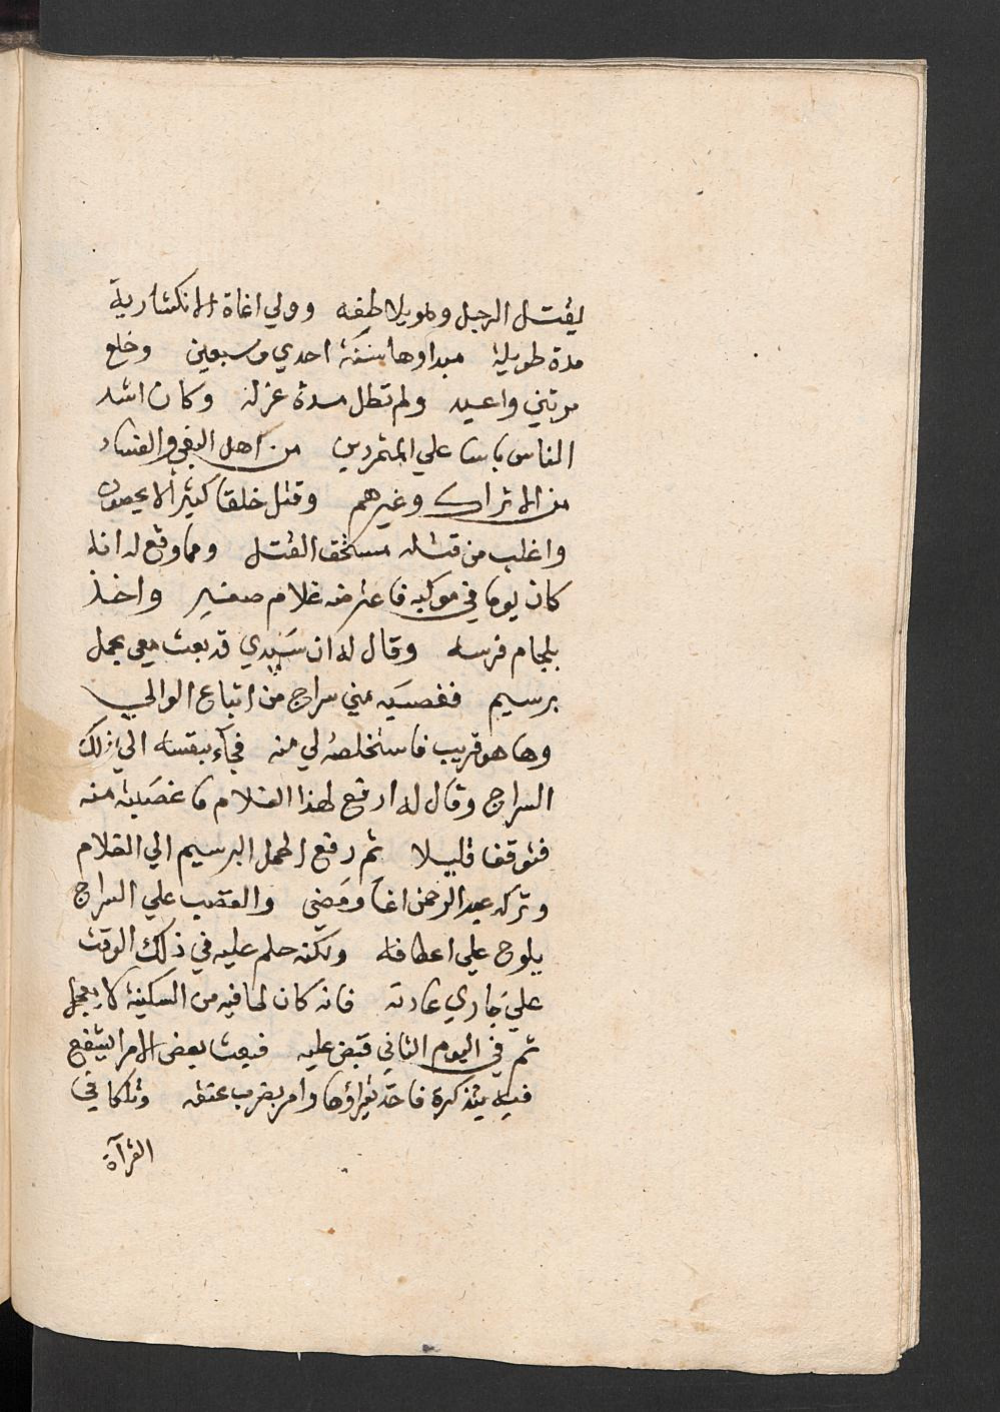 يقتل الرجل وهو يلاطفه وولي اغاة الانكشارية
مدة طويلة مبداوها سنة احدي وسبعين وخلع
مرتين واعيد ولم تطل مدة عزله وكان اشد
الناس باسا علي المتمردين من اهل البغي والفساد
من الاتراك وغيرهم وقتل خلقا كثيرا لا يحصون
واغلب من قتله مستحق القتل ومما وقع له انه
كان يوما في موكبه فاعترضه غلام صغير واخذ
بلجام فرسه وقال له ان سيدي قد بعث معي بحمل
برسيم فغصبه مني سراج من اتباع الوالي
وها هو قريب فاستخلصه لي منه فجآء بنفسه الي ذلك
السراج وقال له ارفع لهذا الغلام ما غصبته منه
فتوقف قليلا ثم رفع الحمل البرسيم الي الغلام
وتركه عبد الرحمن اغا ومضي والغضب علي السراج
يلوح علي اعطافه ولكنه حلم عليه في ذلك الوقت
علي جاري عادته فانه كان لما فيه من السكينة لا يعجل
ثم في اليوم الثاني قبض عليه فبعث بعض الامرا يشفع
فيه بتذكرة فاخذ يقراؤها وامر بضرب عنقه وتلكا في
القرآة